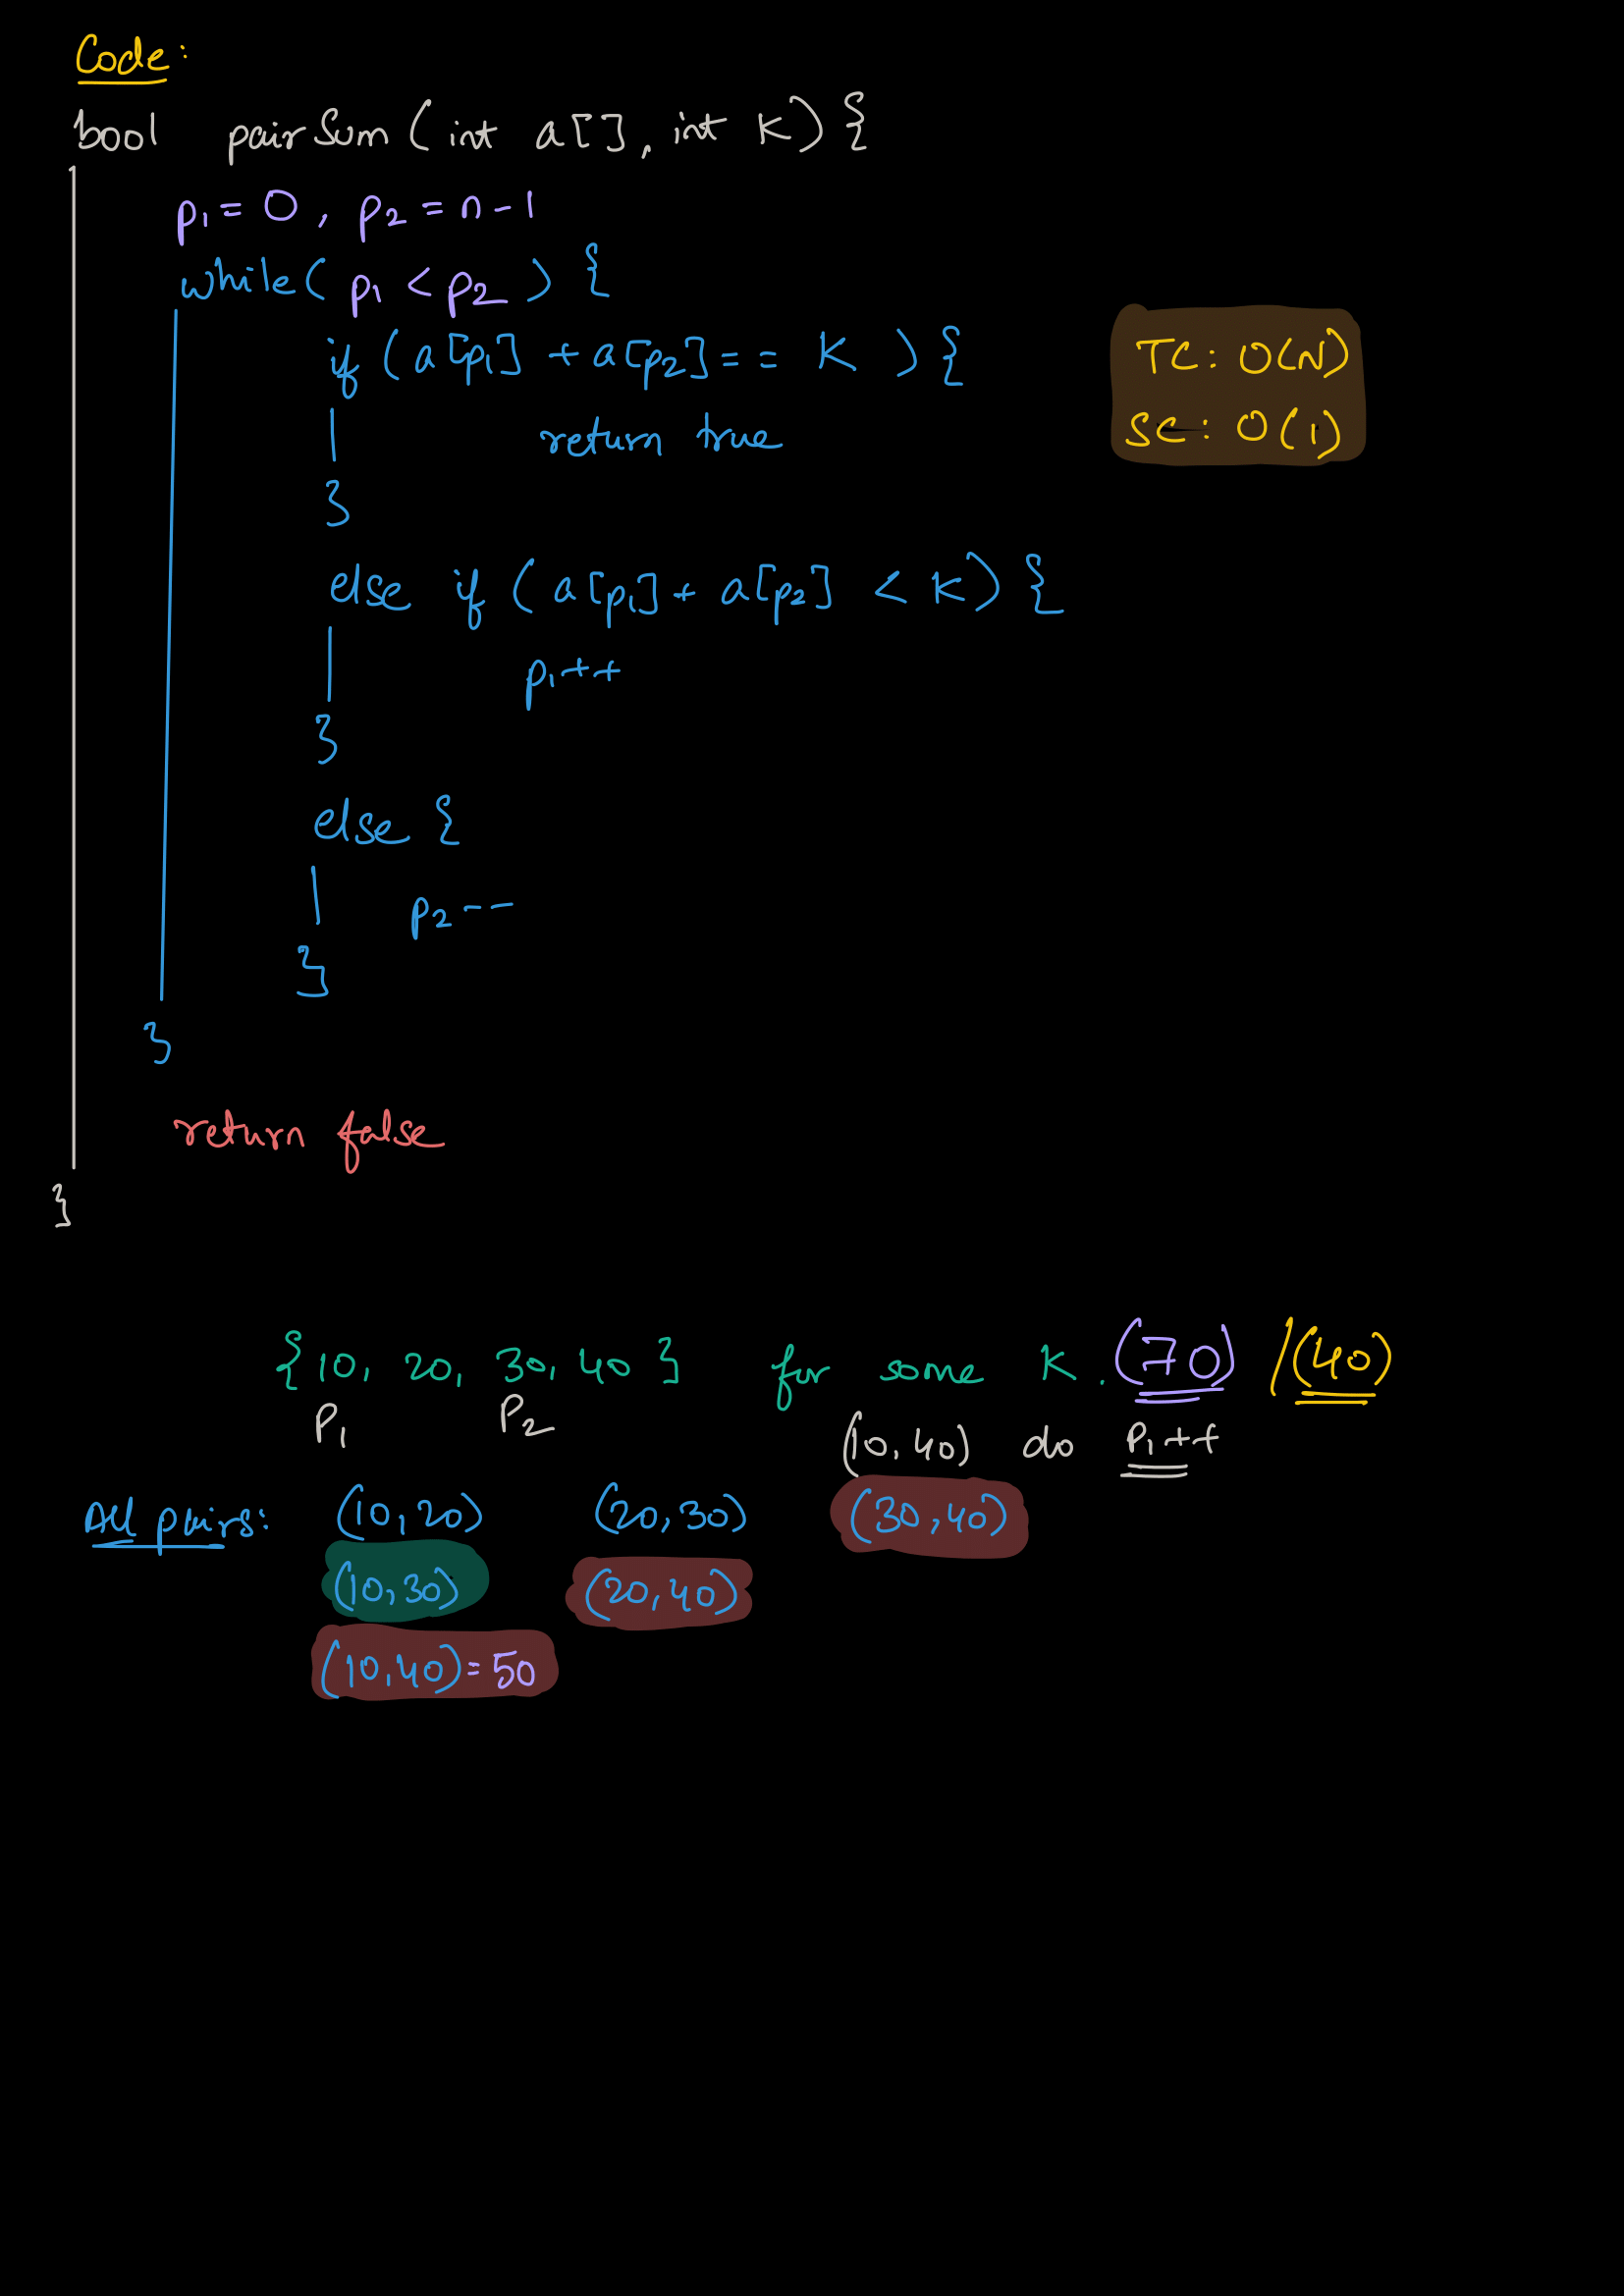 Code:
bool pairSum(int a[], int K) {
p1 = 0, p2 = n-1
while( p1 < p2 ) {
if (a[p1] + a[p2] == K ) {
TC: O(N)
return true
SC: O(1)
}
else if (a[p1] + a[p2] < K) {
p1++
}
else {
p2--
}
}
return false
}
{10, 20, 30, 40 } for some K. (70) /(40)
P1 P2 (10,40) do P1++
All pairs: (10,20) (20,30) (30,40)
(10,30) (20,40)
(10,40)=50